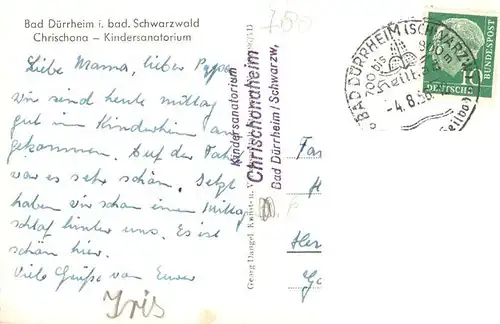 Bad Dürrheim i. bad. Schwarzwald
Chrischona – Kindersanatorium
Liebe Mama, lieber Pappa
wir sind heute mittag
gut im Kinderheim an-
gekommen. Auf der Fahrt
war es sehr schön. Jetzt
haben wir schon einen Mittag
schlaf hinter uns. Es ist
schön hier.
Viele Grüße von Eurer
Iris
Kindersanatorium
Chrischonaheim
Bad Dürrheim/Schwarzw.
Georg Dangel, Kunst- u.
BAD DÜRRHEIM (SCHWARZW
700 bis
-4.8.58
DEUTSCHE
BUNDESPOST
10
Fa
Her